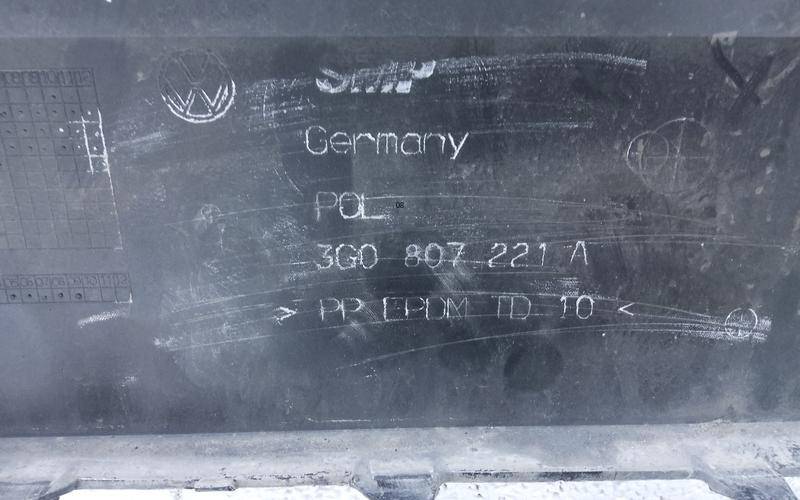 SMP
Germany
POL
08
3G0 807 221 A
> PP EPDM TD 10 <